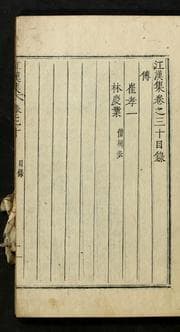 江漢集卷之三十目錄
傳
崔孝一
林慶業
江漢集 卷三十 目錄